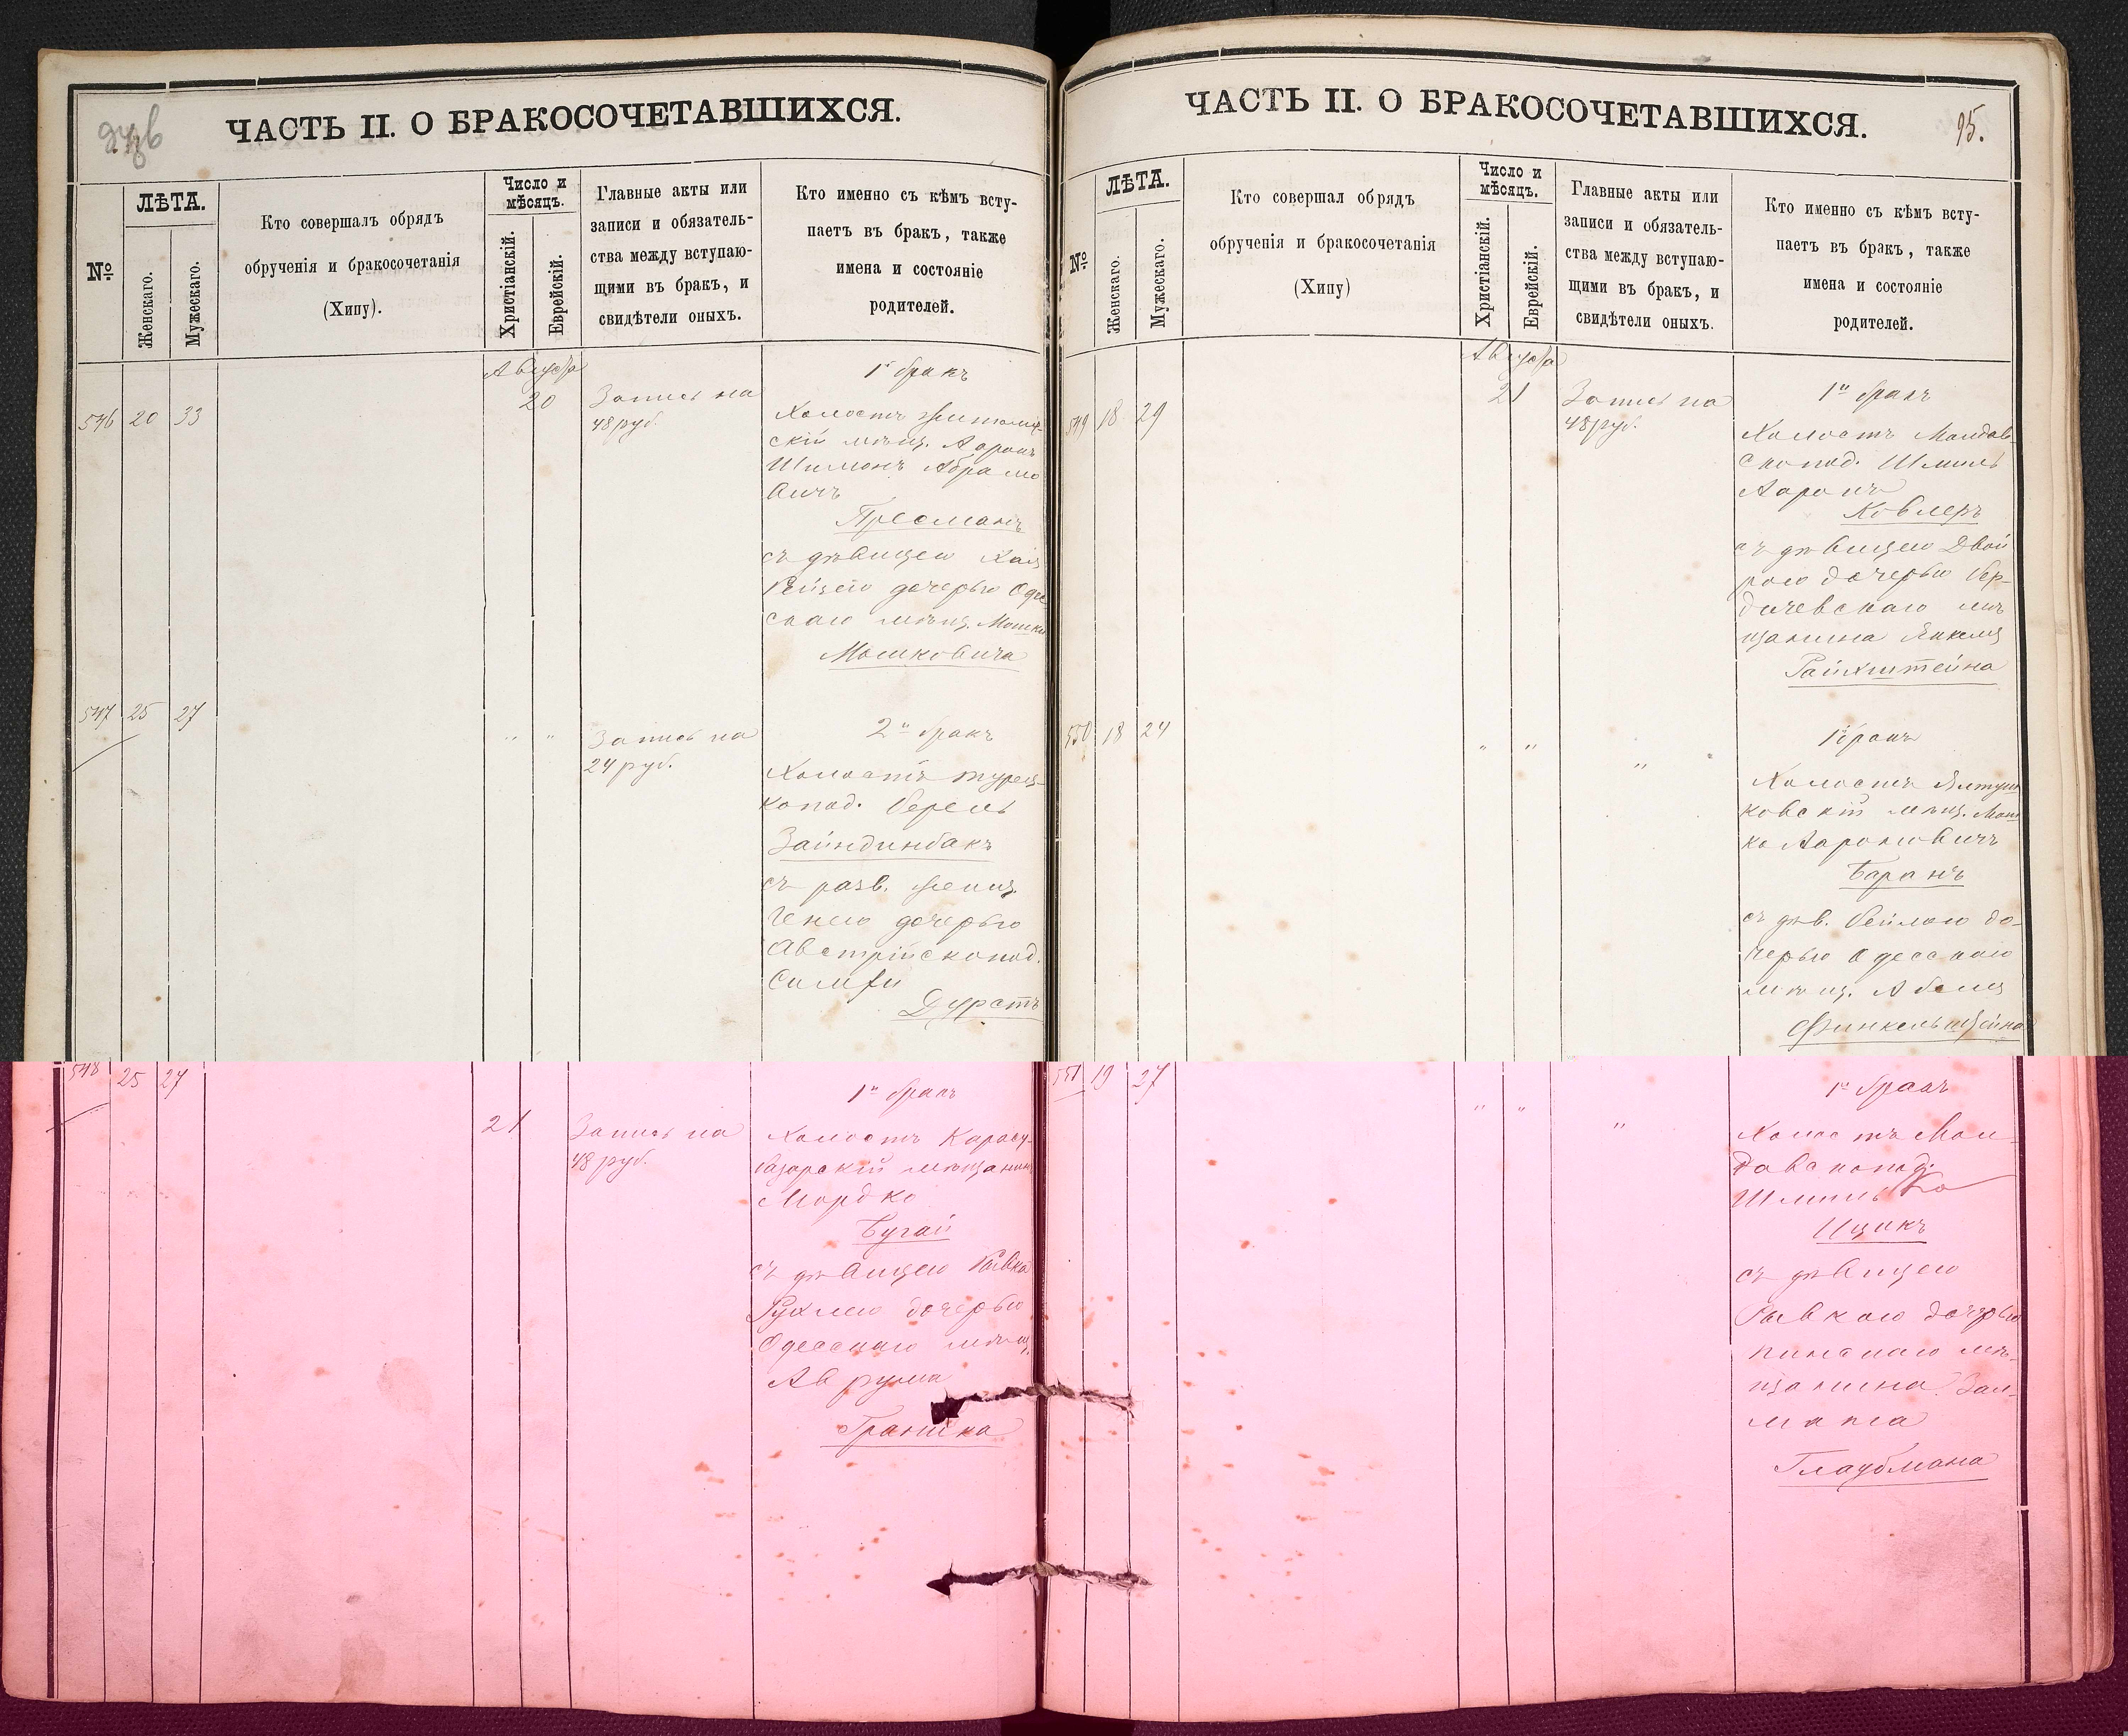 ЧАСТЬ II. О БРАКОСОЧЕТАВШИХСЯ.
№
ЛѢТА.
Женскаго.
Мужескаго.
Кто совершалъ обрядъ
обрученія и бракосочетанія
(Хипу).
Число и
мѣсяцъ.
Христіанскій.
Еврейскій.
Главные акты или
записи и обязатель-
ства между вступаю-
щими въ бракъ, и
свидѣтели оныхъ.
Кто именно съ кѣмъ всту-
паетъ въ бракъ, также
имена и состояніе
родителей.
Августа
546 20 33
20
Запись на
48 руб.
1й бракъ
Холостъ Житомир-
скій мѣщ. Ааронъ
Шимонъ Абрамо
вичъ
Пресманъ
съ дѣвицею Хая
Рейзею дочерью Оде
скаго мѣщ. Мошки
Мошковича
547 25 27
" "
Запись на
24 руб.
2й бракъ
Холостъ турец-
копод. Берель
Зайндинбакъ
съ разв. женщ.
Генею дочерью
Австрійскопод.
Симхи
Дурстъ
548 25 27
21
Запись на
48 руб.
1й бракъ
Холостъ Карасу-
базарскій мѣщанинъ
Мордко
Бугай
съ дѣвицею Ривка
Рухлею дочерью
Одесскаго мѣщ.
Аврума
Граника
ЧАСТЬ II. О БРАКОСОЧЕТАВШИХСЯ.
95.
№
ЛѢТА.
Женскаго.
Мужескаго.
Кто совершал обрядъ
обрученія и бракосочетанія
(Хипу)
Число и
мѣсяцъ.
Христіанскій.
Еврейскій.
Главные акты или
записи и обязатель-
ства между вступаю-
щими въ бракъ, и
свидѣтели оныхъ.
Кто именно съ кѣмъ всту-
паетъ въ бракъ, также
имена и состояніе
родителей.
Августа
549 18 29
21
Запись на
48 руб.
1й бракъ
Холостъ Молдав-
скопод. Шмиль
Ааронъ
Ковлеръ
съ дѣвицею Двой
рою дочерью Бер-
дичевскаго мѣ
щанина Янкеля
Райхштейна
550 18 24
" "
"
1й бракъ
Холостъ Ялтуш
ковскій мѣщ. Мош
ко Ароновичъ
Баранъ
съ дѣв. Бейлою до-
черью Одесскаго
мѣщ. Абеля
Финкельштейна
551 19 27
" "
"
1й бракъ
Холостъ Мол-
давскопод.
Шмиль
Ицикъ
съ дѣвицею
Рывкою дочерью
пинскаго мѣ-
щанина Зал-
мана
Глаубмана